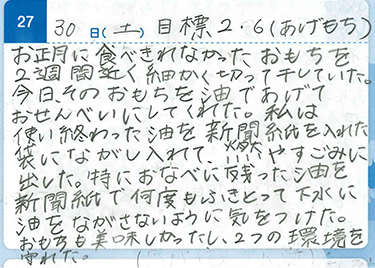 27
30日(土)目標2.6(あげもち)
お正月に食べきれなかったおもちを
2週間近く細かく切って干していた。
今日、そのおもちを油であげて
おせんべいにしてくれた。私は
使い終わった油を新聞紙を入れた
袋にながし入れて、燃やすごみに
出した。特におなべに残った油を
新聞紙で何度もふきとって下水に
油をながさないように気をつけた。
おもちも美味しかったし、2つの環境を
守れた。